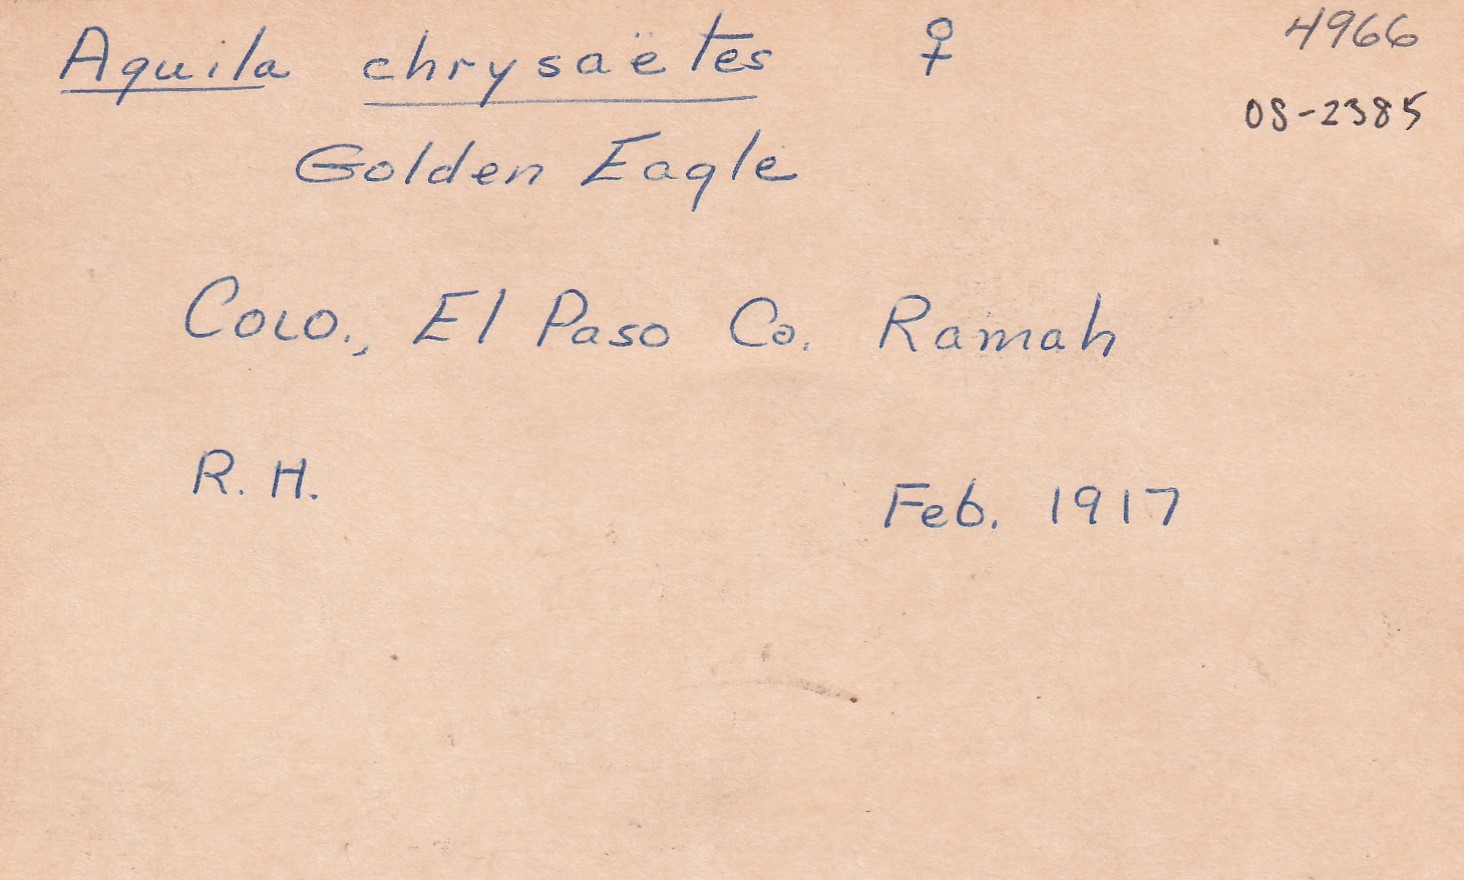 Aquila chrysaëtes ♀ 4966
OS-2385
Golden Eagle
Colo., El Paso Co. Ramah
R. H.
Feb. 1917